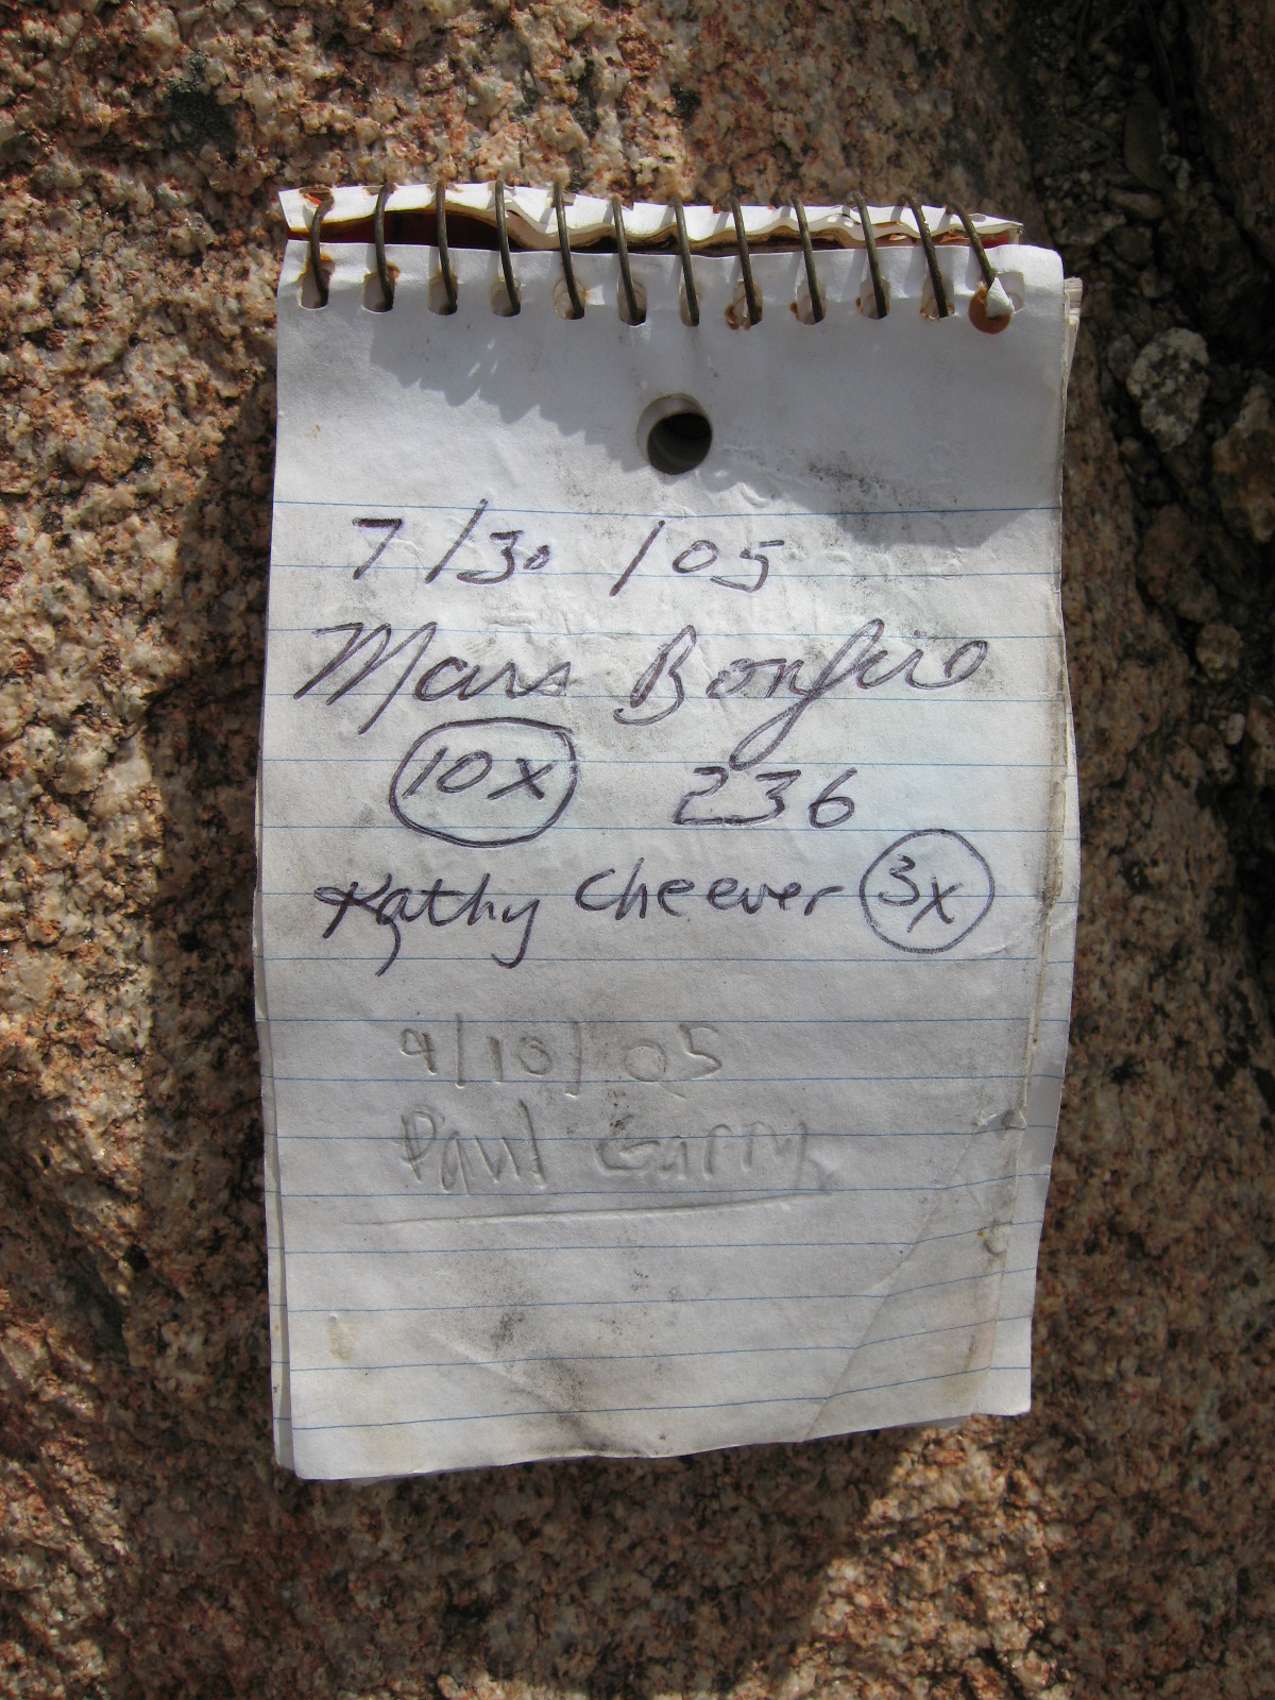 7/30/05
Mars Bonfire
10x 236
Kathy Cheever 3x
9/10/05
Paul Garry